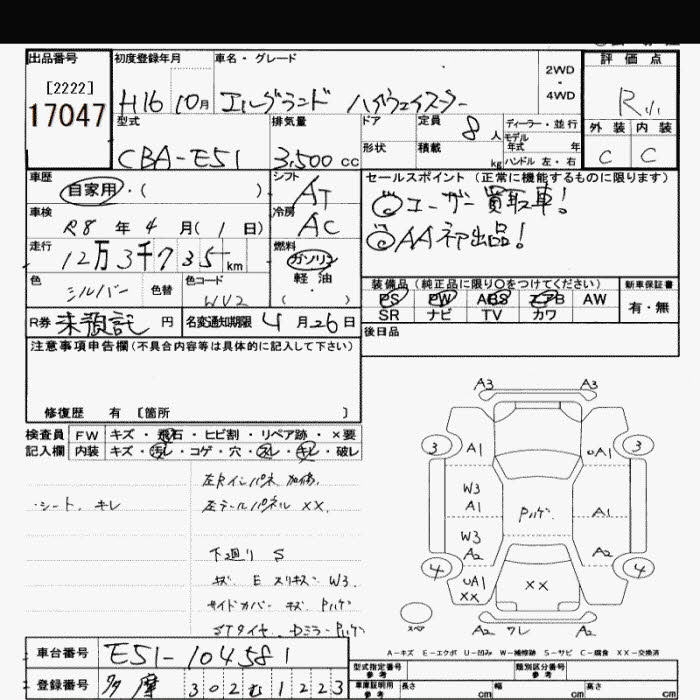 出品番号
[2222]
17047
初度登録年月
H16 10月
車名・グレード
エルグランド ハイウェイスター
2WD
・
4WD
評価点
R
外装 内装
C C
型式
CBA-E51
排気量
3,500 cc
ドア
形状
定員
8 人
積載
kg
ディーラー・並行
モデル
年式 年
ハンドル 左・右
車歴
自家用・( )
車検
R8 年 4 月( 1 日)
走行
12万3千735 km
色
シルバー
色替
色コード
WV2
シフト
AT
冷房
AC
燃料
ガソリン
軽油
( )
セールスポイント (正常に機能するものに限ります)
◎ユーザー買取車!
◎AA初出品!
装備品 (純正品に限り○をつけてください)
PS PW ABS エアB AW
SR ナビ TV カワ
新車保証書
有・無
R券 未預託 円
名変通知期限 4 月 26 日
後日品
注意事項申告欄 (不具合内容等は具体的に記入して下さい)
修復歴 有 [箇所 ]
検査員 FW キズ・飛石・ヒビ割・リペア跡・×要
記入欄 内装 キズ・汚レ・コゲ・穴・スレ・キレ・破レ
・シート、キレ
左Rインパネ 加修,
左テールパネル XX,
下廻り S
キズ E スリキズ W3,
サイドカバー キズ Pハゲ
STタイヤ、DミラーPハゲ
A3 A3
3 A1 UA1 3
W3
A1 Pハゲ A1
W3
A2 A2
4 4
UA1
XX XX
スペア A2 ワレ A2
A-キズ E-エクボ U-凹み W-補修跡 S-サビ C-腐食 XX-交換済
車台番号 E51-104581
登録番号 多摩 302 む 1223
型式指定番号
参考
類別区分番号
参考
車庫証明用
参考
長さ cm 幅 cm 高さ cm